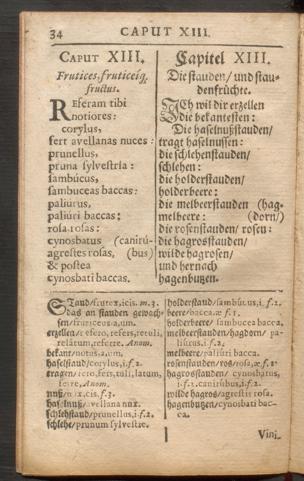 34 CAPUT XIII.
CAPUT XIII.
Frutices, fruticeiq́;
fructus.
REferam tibi
notiores:
corylus,
fert avellanas nuces:
prunellus,
pruna sylvestria:
sambúcus,
sambuceas baccas:
paliurus,
paliúri baccas:
rosa rosas:
cynosbatus (canirú-
agrestes rosas, (bus)
& postea
cynosbati baccas.
Capitel XIII.
Die stauden/ und stau-
denfrüchte.
ICh wil dir erzellen
die bekantesten:
Die haselnußstauden/
tragt haselnussen:
die schlehenstauden/
schlehen:
die holderstauden/
holderbeere:
die melbeerstauden (hag-
melbeere: (dorn/)
die rosenstauden/ rosen:
die hagrosstauden/
wilde hagrosen/
und hernach
hagenbutzen.
STaud/ frutex, icis. m. 3.
das an stauden gewach-
sen/ fruticeus, a, um.
erzellen/ refero, refers, retuli,
relatum, referre. Anom.
bekant/ notus, a, um.
haselstaud/ corylus, i, f. 2.
tragen/ fero, fers, tuli, latum,
ferre, Anom.
nuß/ nux, cis. f. 3.
haselnuß/ avellana nux.
schlehstaud/ prunellus, i, f. 2.
schlehe/ prunum sylvestre.
holderstaud/ sambucus, i. f. 2.
beere/ bacca, æ f. 1.
holderbeere/ sambucea bacca.
melbeerstauden/ hagdorn/ pa-
liurus, i. f. 2.
melbeere/ paliuri bacca.
rosenstauden/ ros/ rosa, æ f. 1.
hagrosstauden/ cynosbatus,
i. f. 2. canirubus, i. f. 2.
wilde hagros/ agrestis rosa.
hagenbutzen/ cynosbati bac-
ca.
Vini,